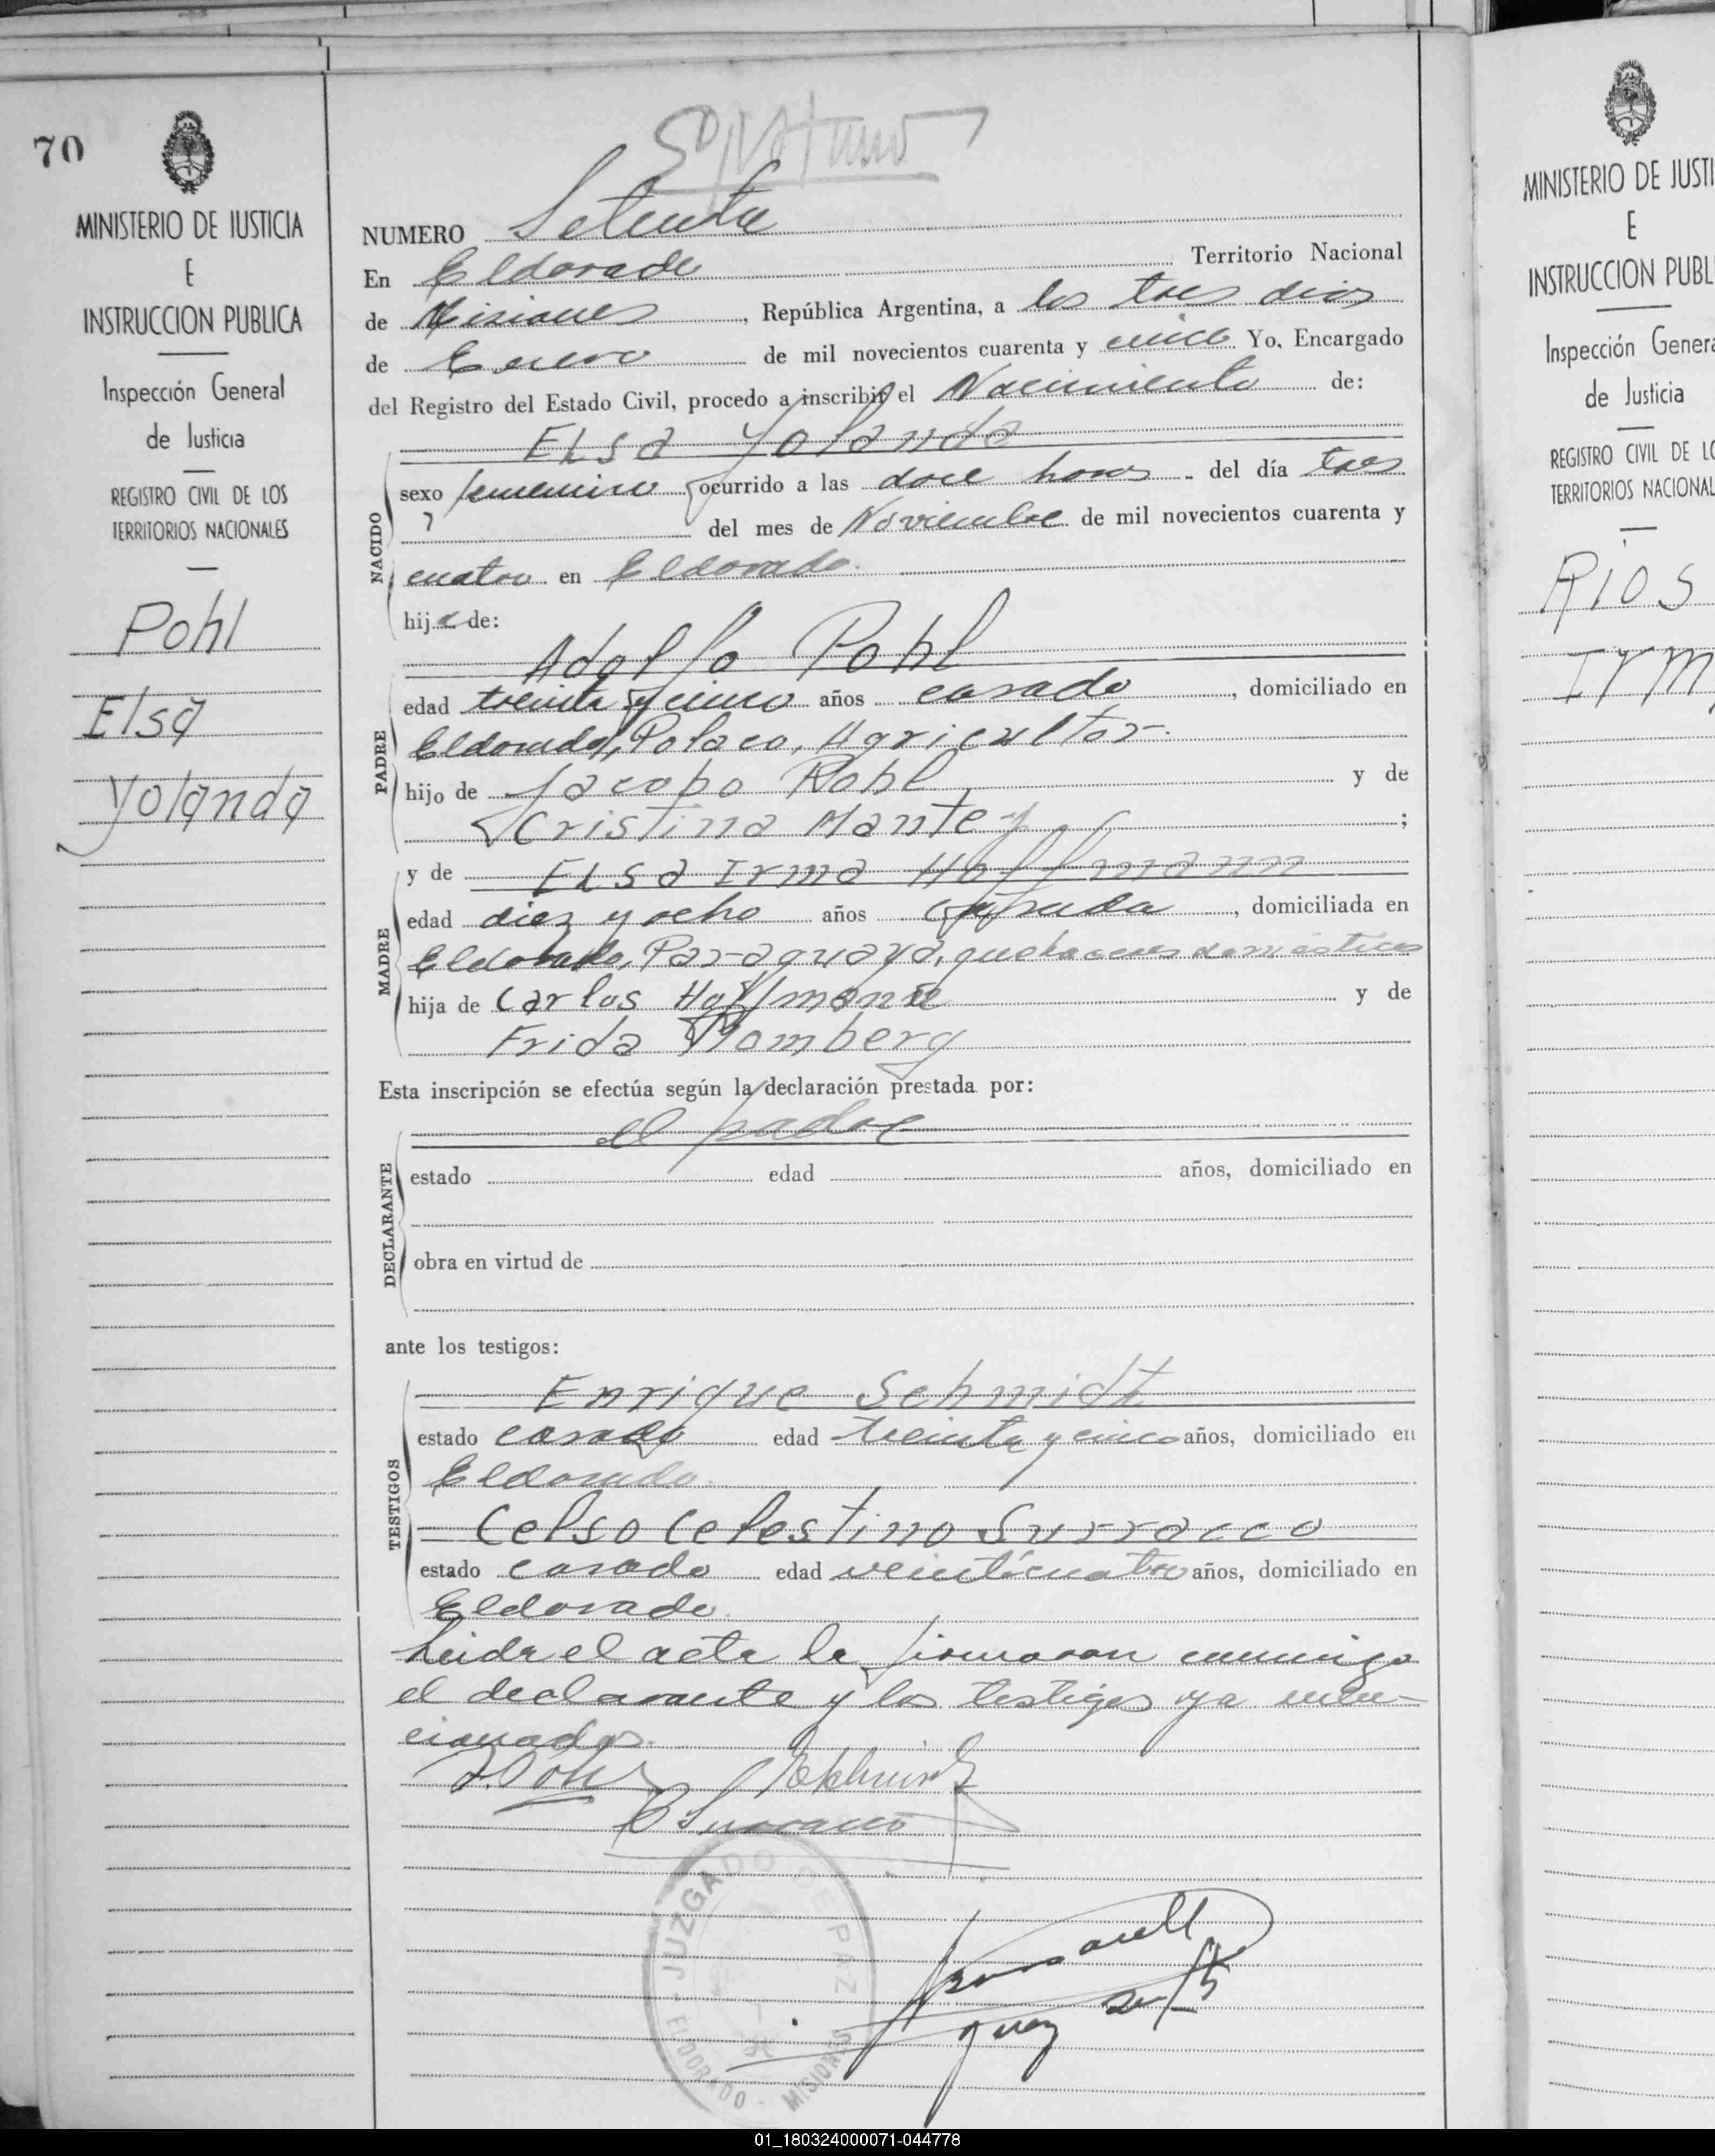 70
MINISTERIO DE JUSTICIA
E
INSTRUCCION PUBLICA
Inspección General
de Justicia
REGISTRO CIVIL DE LOS
TERRITORIOS NACIONALES
Pohl
Elsa
Yolanda
NUMERO Setenta
En Eldorado Territorio Nacional
de Misiones, República Argentina, a los tres dias
de Enero de mil novecientos cuarenta y cinco Yo, Encargado
del Registro del Estado Civil, procedo a inscribir el Nacimiento de:
Elsa Yolanda
NACIDO
sexo femenino ocurrido a las doce horas del día tres
del mes de Noviembre de mil novecientos cuarenta y
cuatro en Eldorado.
hija de:
Adolfo Pohl
PADRE
edad treinta y cinco años casado, domiciliado en
Eldorado, Polaco, Agricultor.
hijo de Jacobo Pohl y de
Cristina Mantey;
MADRE
y de Elsa Irma Hoffmann
edad diez y ocho años casada, domiciliada en
Eldorado, Paraguaya, quehaceres domésticos
hija de Carlos Hoffmann y de
Frida Bomberg
Esta inscripción se efectúa según la declaración prestada por:
el padre
DECLARANTE
estado edad años, domiciliado en
obra en virtud de
ante los testigos:
TESTIGOS
Enrique Schmidt
estado casado edad treinta y cinco años, domiciliado en
Eldorado.
Celso Celestino Surracco
estado casado edad veinticuatro años, domiciliado en
Eldorado.
Leida el acta la firmaron conmigo
el declarante y los testigos ya men-
cionados.
A. Pohl
C Surracco
JUZGADO DE PAZ
ELDORADO - MISIONES
Juez
MINISTERIO DE JUSTI
E
INSTRUCCION PUBL
Inspección Genera
de Justicia
REGISTRO CIVIL DE LO
TERRITORIOS NACIONAL
RIOS
Irm
01_180324000071-044778